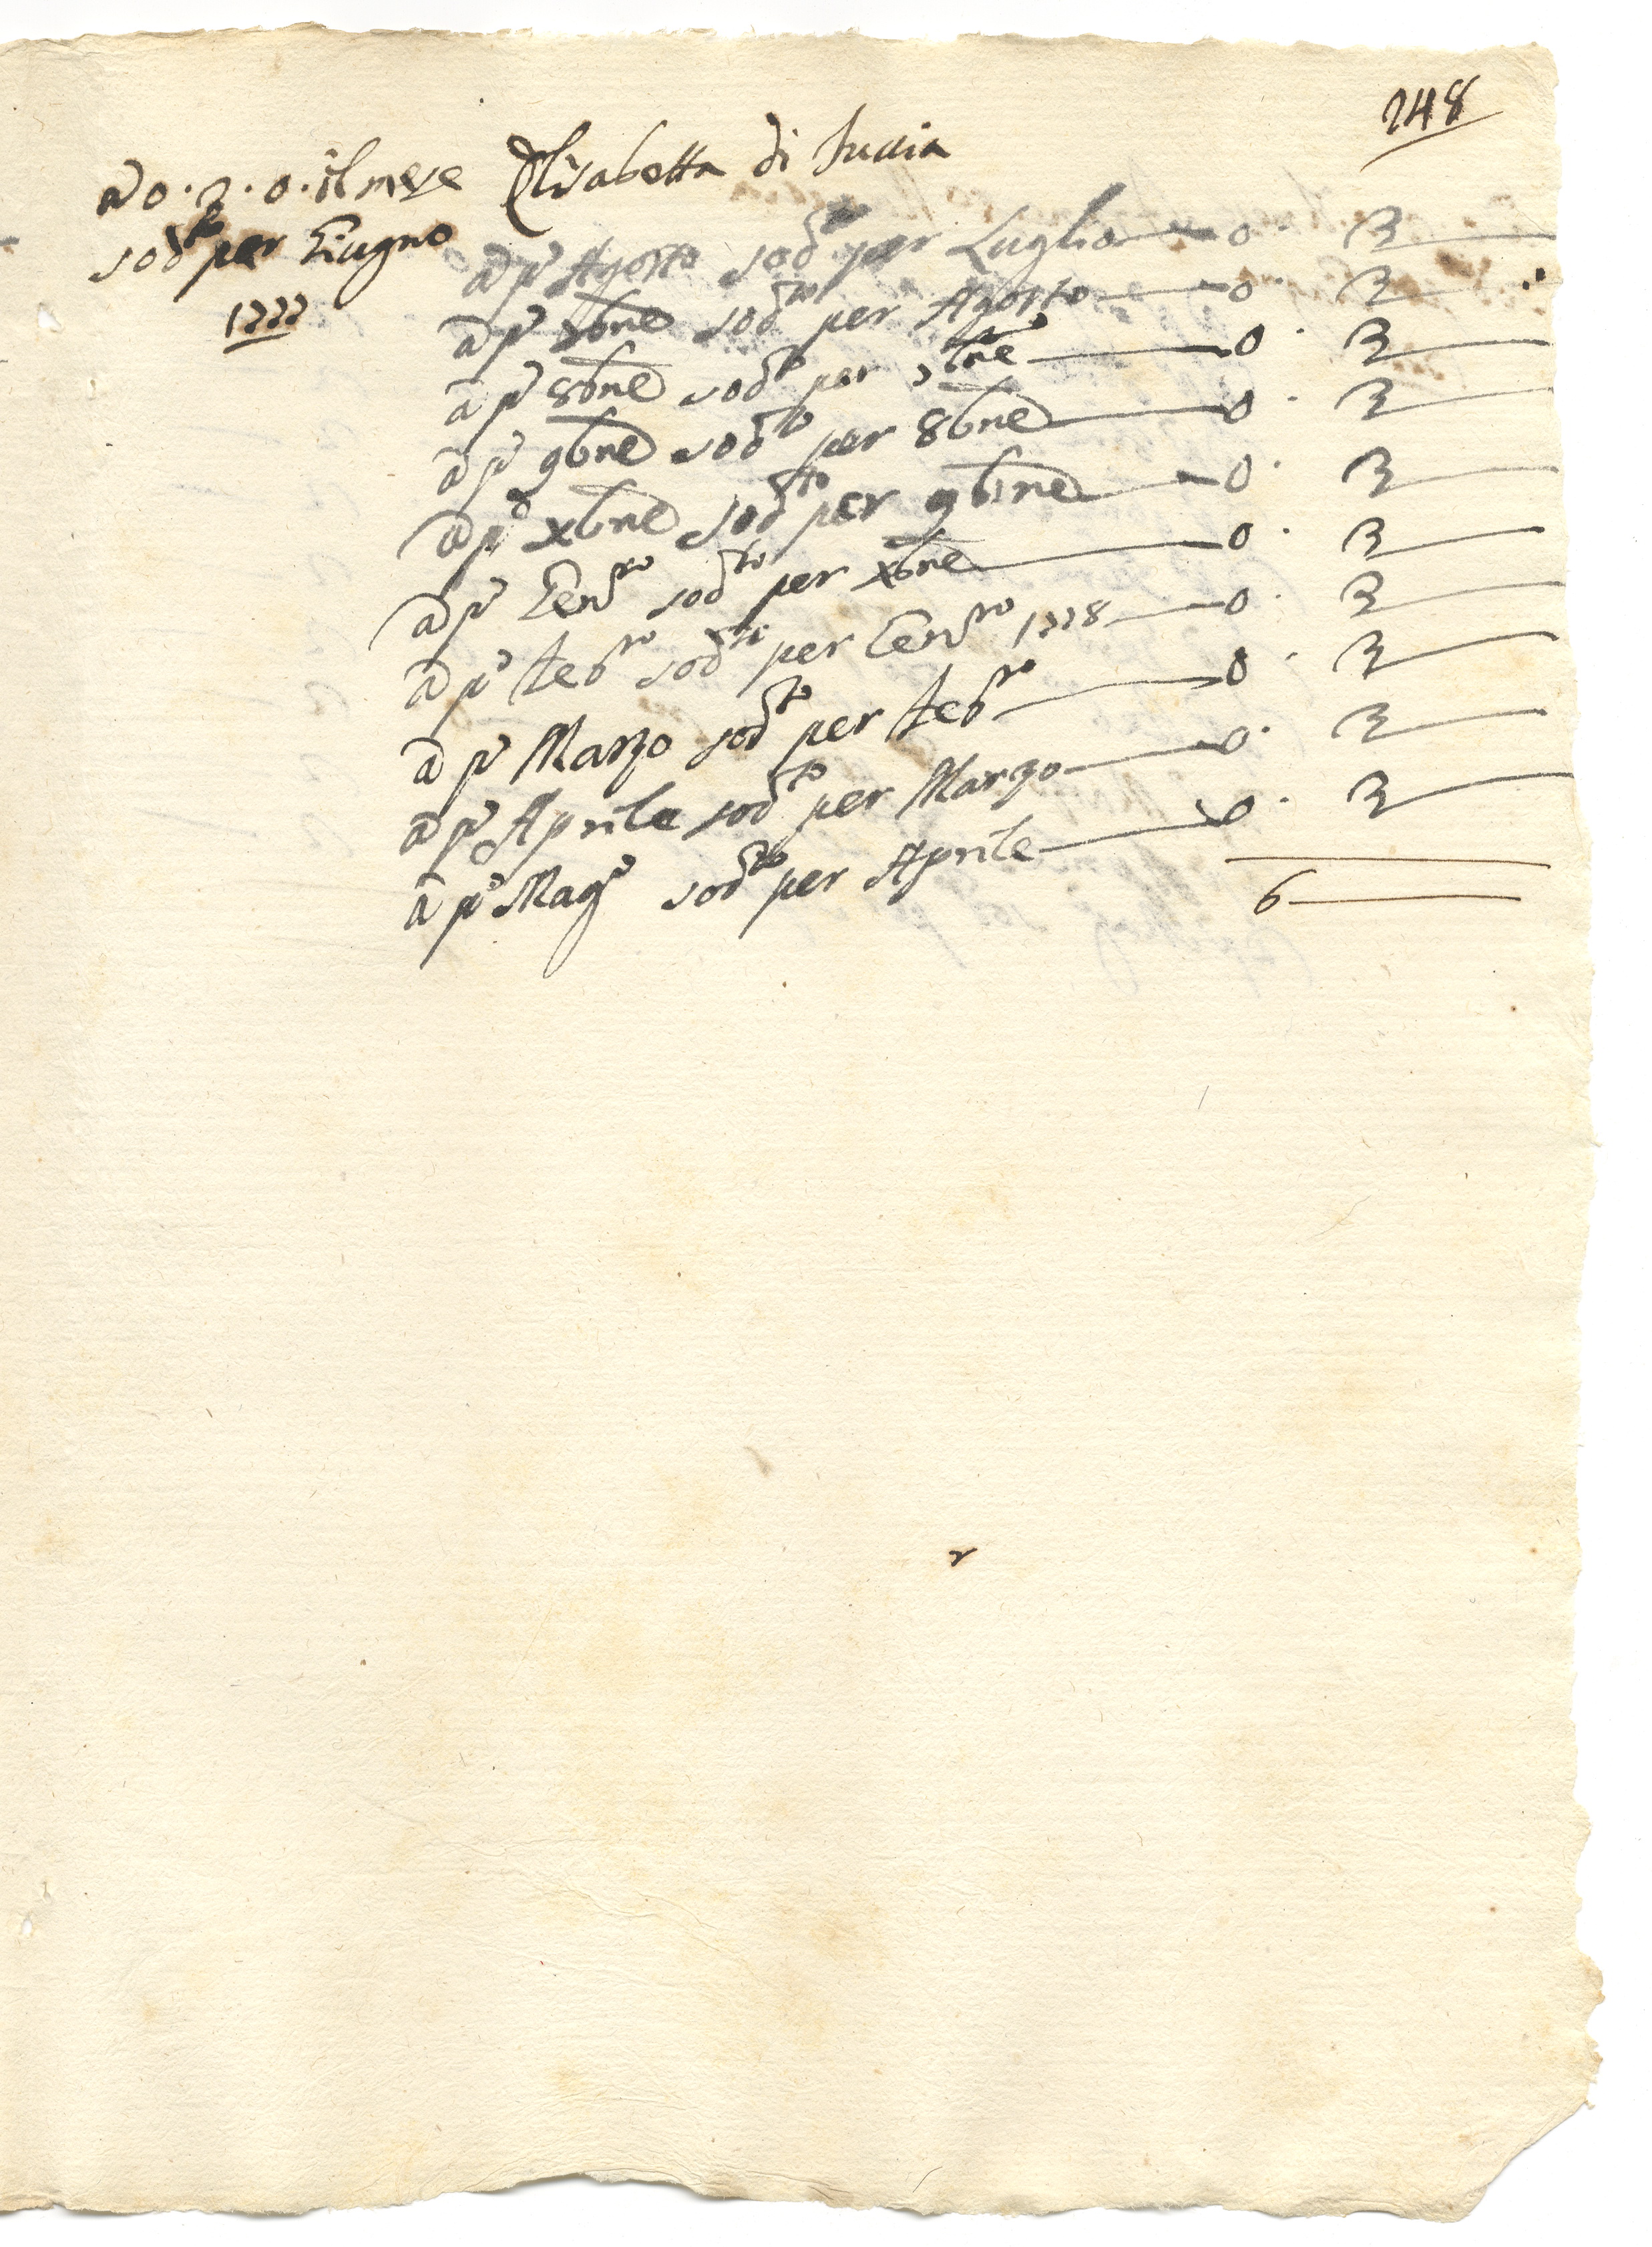 248
a 0. 2. 0. il mese Elisabetta di
sod.to per Giugno
1777
a p.o Agosto sod.to per Luglio — 0. 2 —
a p.o 7bre sod.to per Agosto — 0. 2 —
a p.o 8bre sod.to per 7bre — 0. 2 —
a p.o 9bre sod.to per 8bre — 0. 2 —
a p.o xbre sod.to per 9bre — 0. 2 —
a p.o Gen.ro sod.to per xbre — 0. 2 —
a p.o feb.ro sod.to per Gen.ro 1778 — 0. 2 —
a p.o Marzo sod.to per feb.ro — 0. 2 —
a p.o Aprile sod.to per Marzo — 0. 2 —
a p.o Mag.o sod.to per Aprile — 0. 2 —
6 —